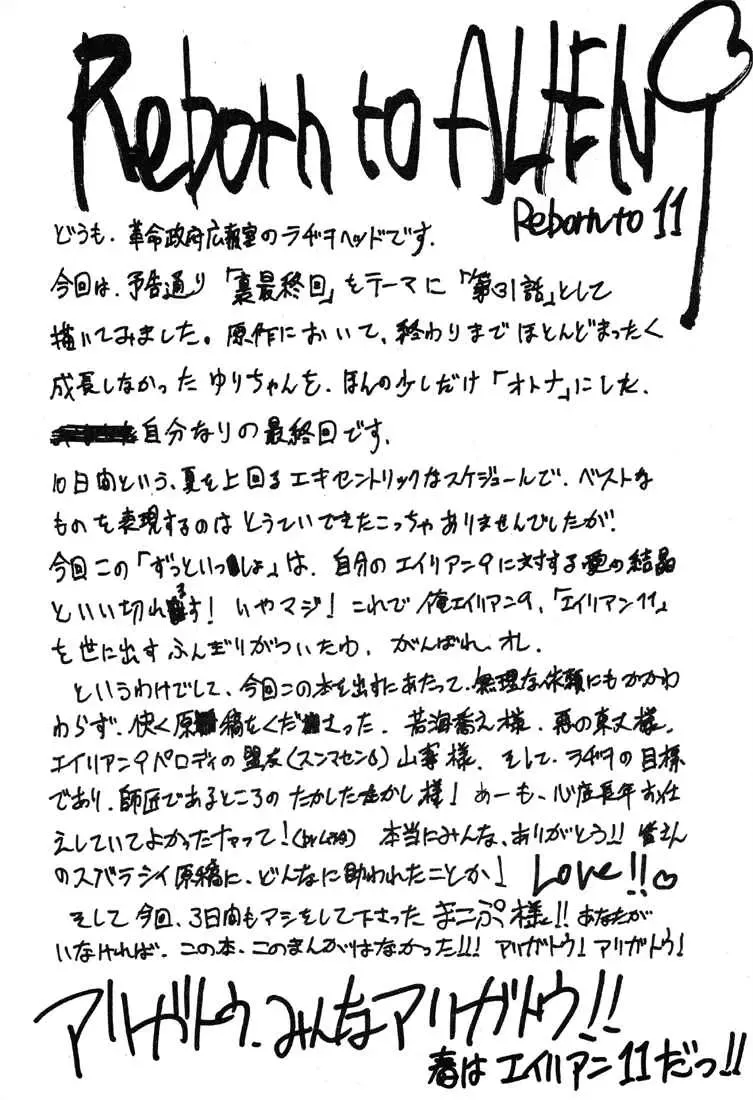 Reborn to ALIEN9
Reborn to 11
どうも、革命政府広報室のラヂヲヘッドです。
今回は、予告通り「裏最終回」をテーマに「第31話」として
描いてみました。原作において、終わりまでほとんどまったく
成長しなかったゆりちゃんを、ほんの少しだけ「オトナ」にした、
自分なりの最終回です。
10日間という、夏を上回るエキセントリックなスケジュールで、ベストな
ものを表現するのはとうていできたこっちゃありませんでしたが、
今回この「ずっといっしょ」は、自分のエイリアン9に対する愛の結晶
といい切れます! いやマジ! これで俺エイリアン9、「エイリアン11」
を世に出すふんぎりがついたわ、がんばれ、オレ。
というわけでして、今回この本を出すにあたって、無理な依頼にもかかわ
わらず、快く原稿をくださった、若海喬え様、悪の東丈様、
エイリアン9パロディの盟友(スンマセン6)山事様、そして、ラヂヲの目標
であり、師匠であるところのたかしたたかし様! あーも、心底長年お仕
えしていてよかったナァって! 本当にみんな、ありがとう!! 皆さん
のスバラシイ原稿に、どんなに助われたことか! Love!!♡
そして今回、3日間もアシをして下さったまこぷ様!! あなたが
いなければ、この本、このまんがはなかった!!! アリガトウ! アリガトウ!
アリガトウ、みんなアリガトウ!!
春はエイリアン11だっ!!